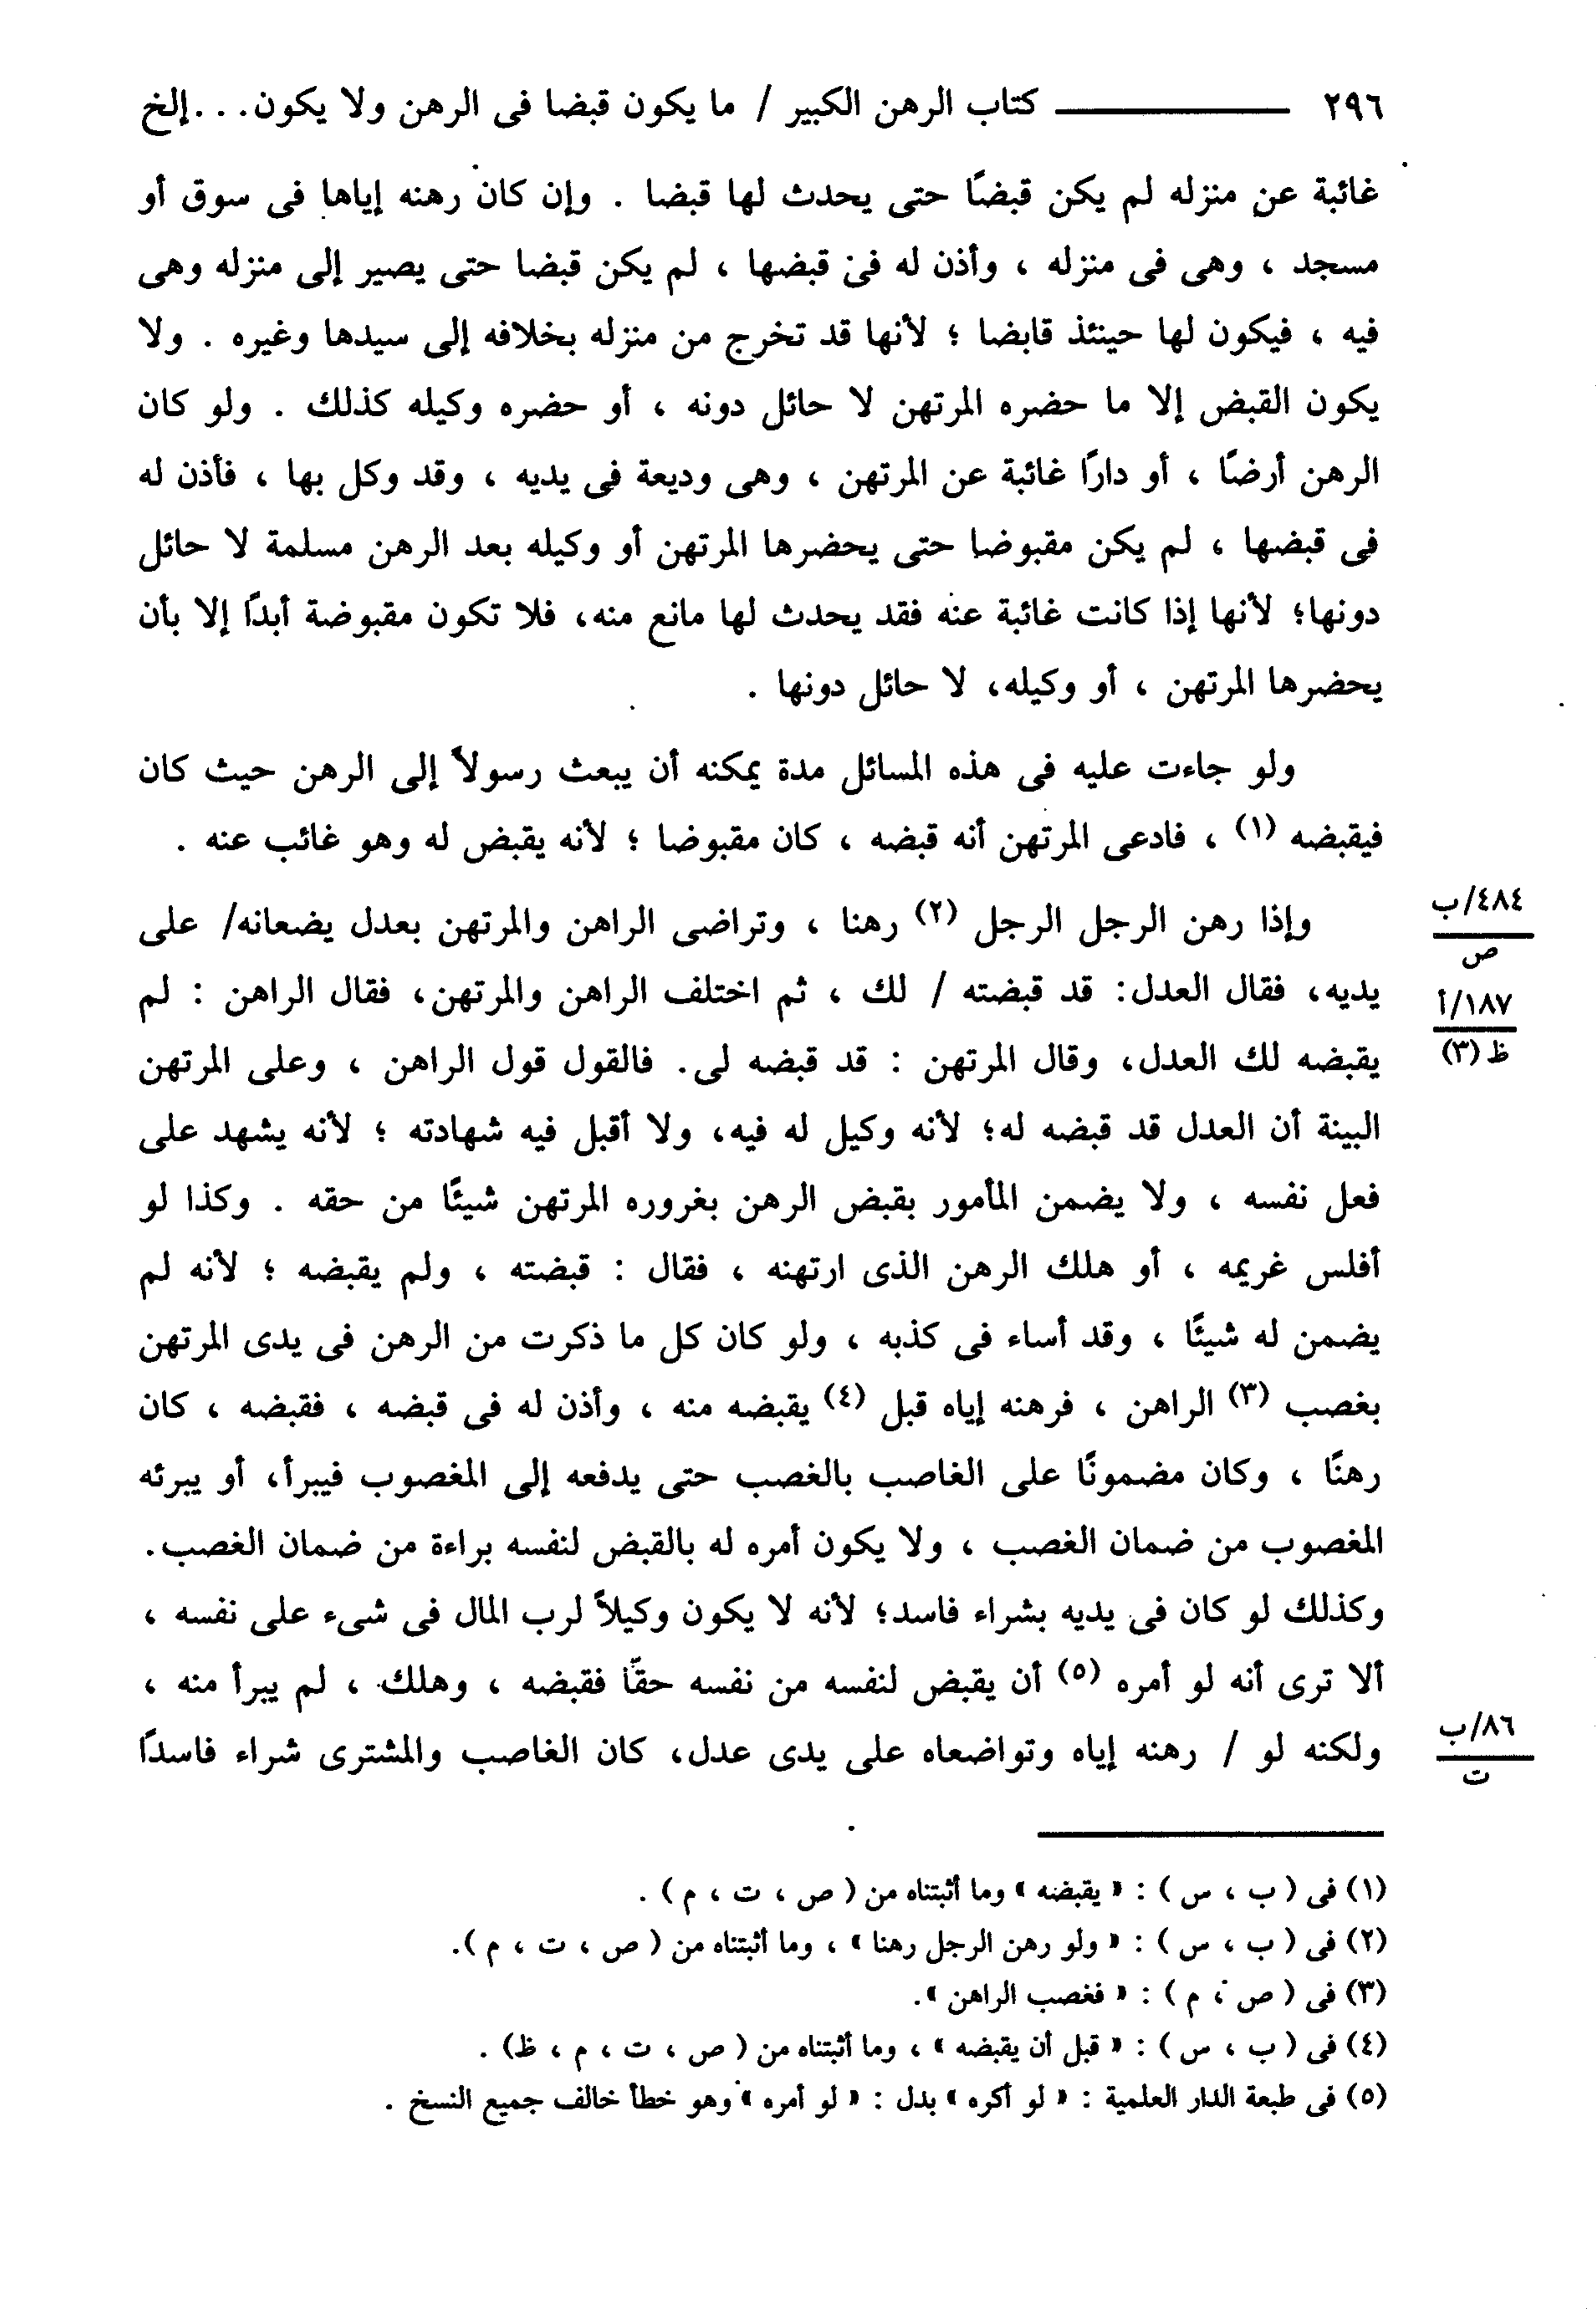 ٢٩٦ ــــــــــــ كتاب الرهن الكبير / ما يكون قبضا فى الرهن ولا يكون...إلخ
غائبة عن منزله لم يكن قبضًا حتى يحدث لها قبضا . وإن كان رهنه إياها فى سوق أو
مسجد ، وهى فى منزله ، وأذن له فى قبضها ، لم يكن قبضا حتى يصير إلى منزله وهى
فيه ، فيكون لها حينئذ قابضا ؛ لأنها قد تخرج من منزله بخلافه إلى سيدها وغيره . ولا
يكون القبض إلا ما حضره المرتهن لا حائل دونه ، أو حضره وكيله كذلك . ولو كان
الرهن أرضًا ، أو دارًا غائبة عن المرتهن ، وهى وديعة فى يديه ، وقد وكل بها ، فأذن له
فى قبضها ، لم يكن مقبوضا حتى يحضرها المرتهن أو وكيله بعد الرهن مسلمة لا حائل
دونها؛ لأنها إذا كانت غائبة عنه فقد يحدث لها مانع منه، فلا تكون مقبوضة أبدًا إلا بأن
يحضرها المرتهن ، أو وكيله، لا حائل دونها .
ولو جاءت عليه فى هذه المسائل مدة يمكنه أن يبعث رسولاً إلى الرهن حيث كان
فيقبضه (١) ، فادعى المرتهن أنه قبضه ، كان مقبوضا ؛ لأنه يقبض له وهو غائب عنه .
وإذا رهن الرجل الرجل (٢) رهنا ، وتراضى الراهن والمرتهن بعدل يضعانه/ على
٤٨٤/ب
ص
يديه، فقال العدل: قد قبضته / لك ، ثم اختلف الراهن والمرتهن، فقال الراهن : لم
١٨٧/أ
ظ (٣)
يقبضه لك العدل، وقال المرتهن : قد قبضه لى. فالقول قول الراهن ، وعلى المرتهن
البينة أن العدل قد قبضه له؛ لأنه وكيل له فيه، ولا أقبل فيه شهادته ؛ لأنه يشهد على
فعل نفسه ، ولا يضمن المأمور بقبض الرهن بغروره المرتهن شيئًا من حقه . وكذا لو
أفلس غريمه ، أو هلك الرهن الذى ارتهنه ، فقال : قبضته ، ولم يقبضه ؛ لأنه لم
يضمن له شيئًا ، وقد أساء فى كذبه ، ولو كان كل ما ذكرت من الرهن فى يدى المرتهن
بغصب (٣) الراهن ، فرهنه إياه قبل (٤) يقبضه منه ، وأذن له فى قبضه ، فقبضه ، كان
رهنًا ، وكان مضمونًا على الغاصب بالغصب حتى يدفعه إلى المغصوب فيبرأ، أو يبرئه
المغصوب من ضمان الغصب ، ولا يكون أمره له بالقبض لنفسه براءة من ضمان الغصب.
وكذلك لو كان فى يديه بشراء فاسد؛ لأنه لا يكون وكيلاً لرب المال فى شىء على نفسه ،
ألا ترى أنه لو أمره (٥) أن يقبض لنفسه من نفسه حقًا فقبضه ، وهلك ، لم يبرأ منه ،
ولكنه لو / رهنه إياه وتواضعاه على يدى عدل، كان الغاصب والمشترى شراء فاسدًا
٨٦/ب
ت
(١) فى ( ب ، س ) : « يقبضه » وما أثبتناه من ( ص ، ت ، م ) .
(٢) فى ( ب ، س ) : « ولو رهن الرجل رهنا » ، وما أثبتناه من ( ص ، ت ، م ).
(٣) فى ( ص ، م ) : « فغصب الراهن ».
(٤) فى ( ب ، س ) : « قبل أن يقبضه » ، وما أثبتناه من ( ص ، ت ، م ، ظ) .
(٥) فى طبعة الدار العلمية : « لو أكره » بدل : « لو أمره » وهو خطأ خالف جميع النسخ .